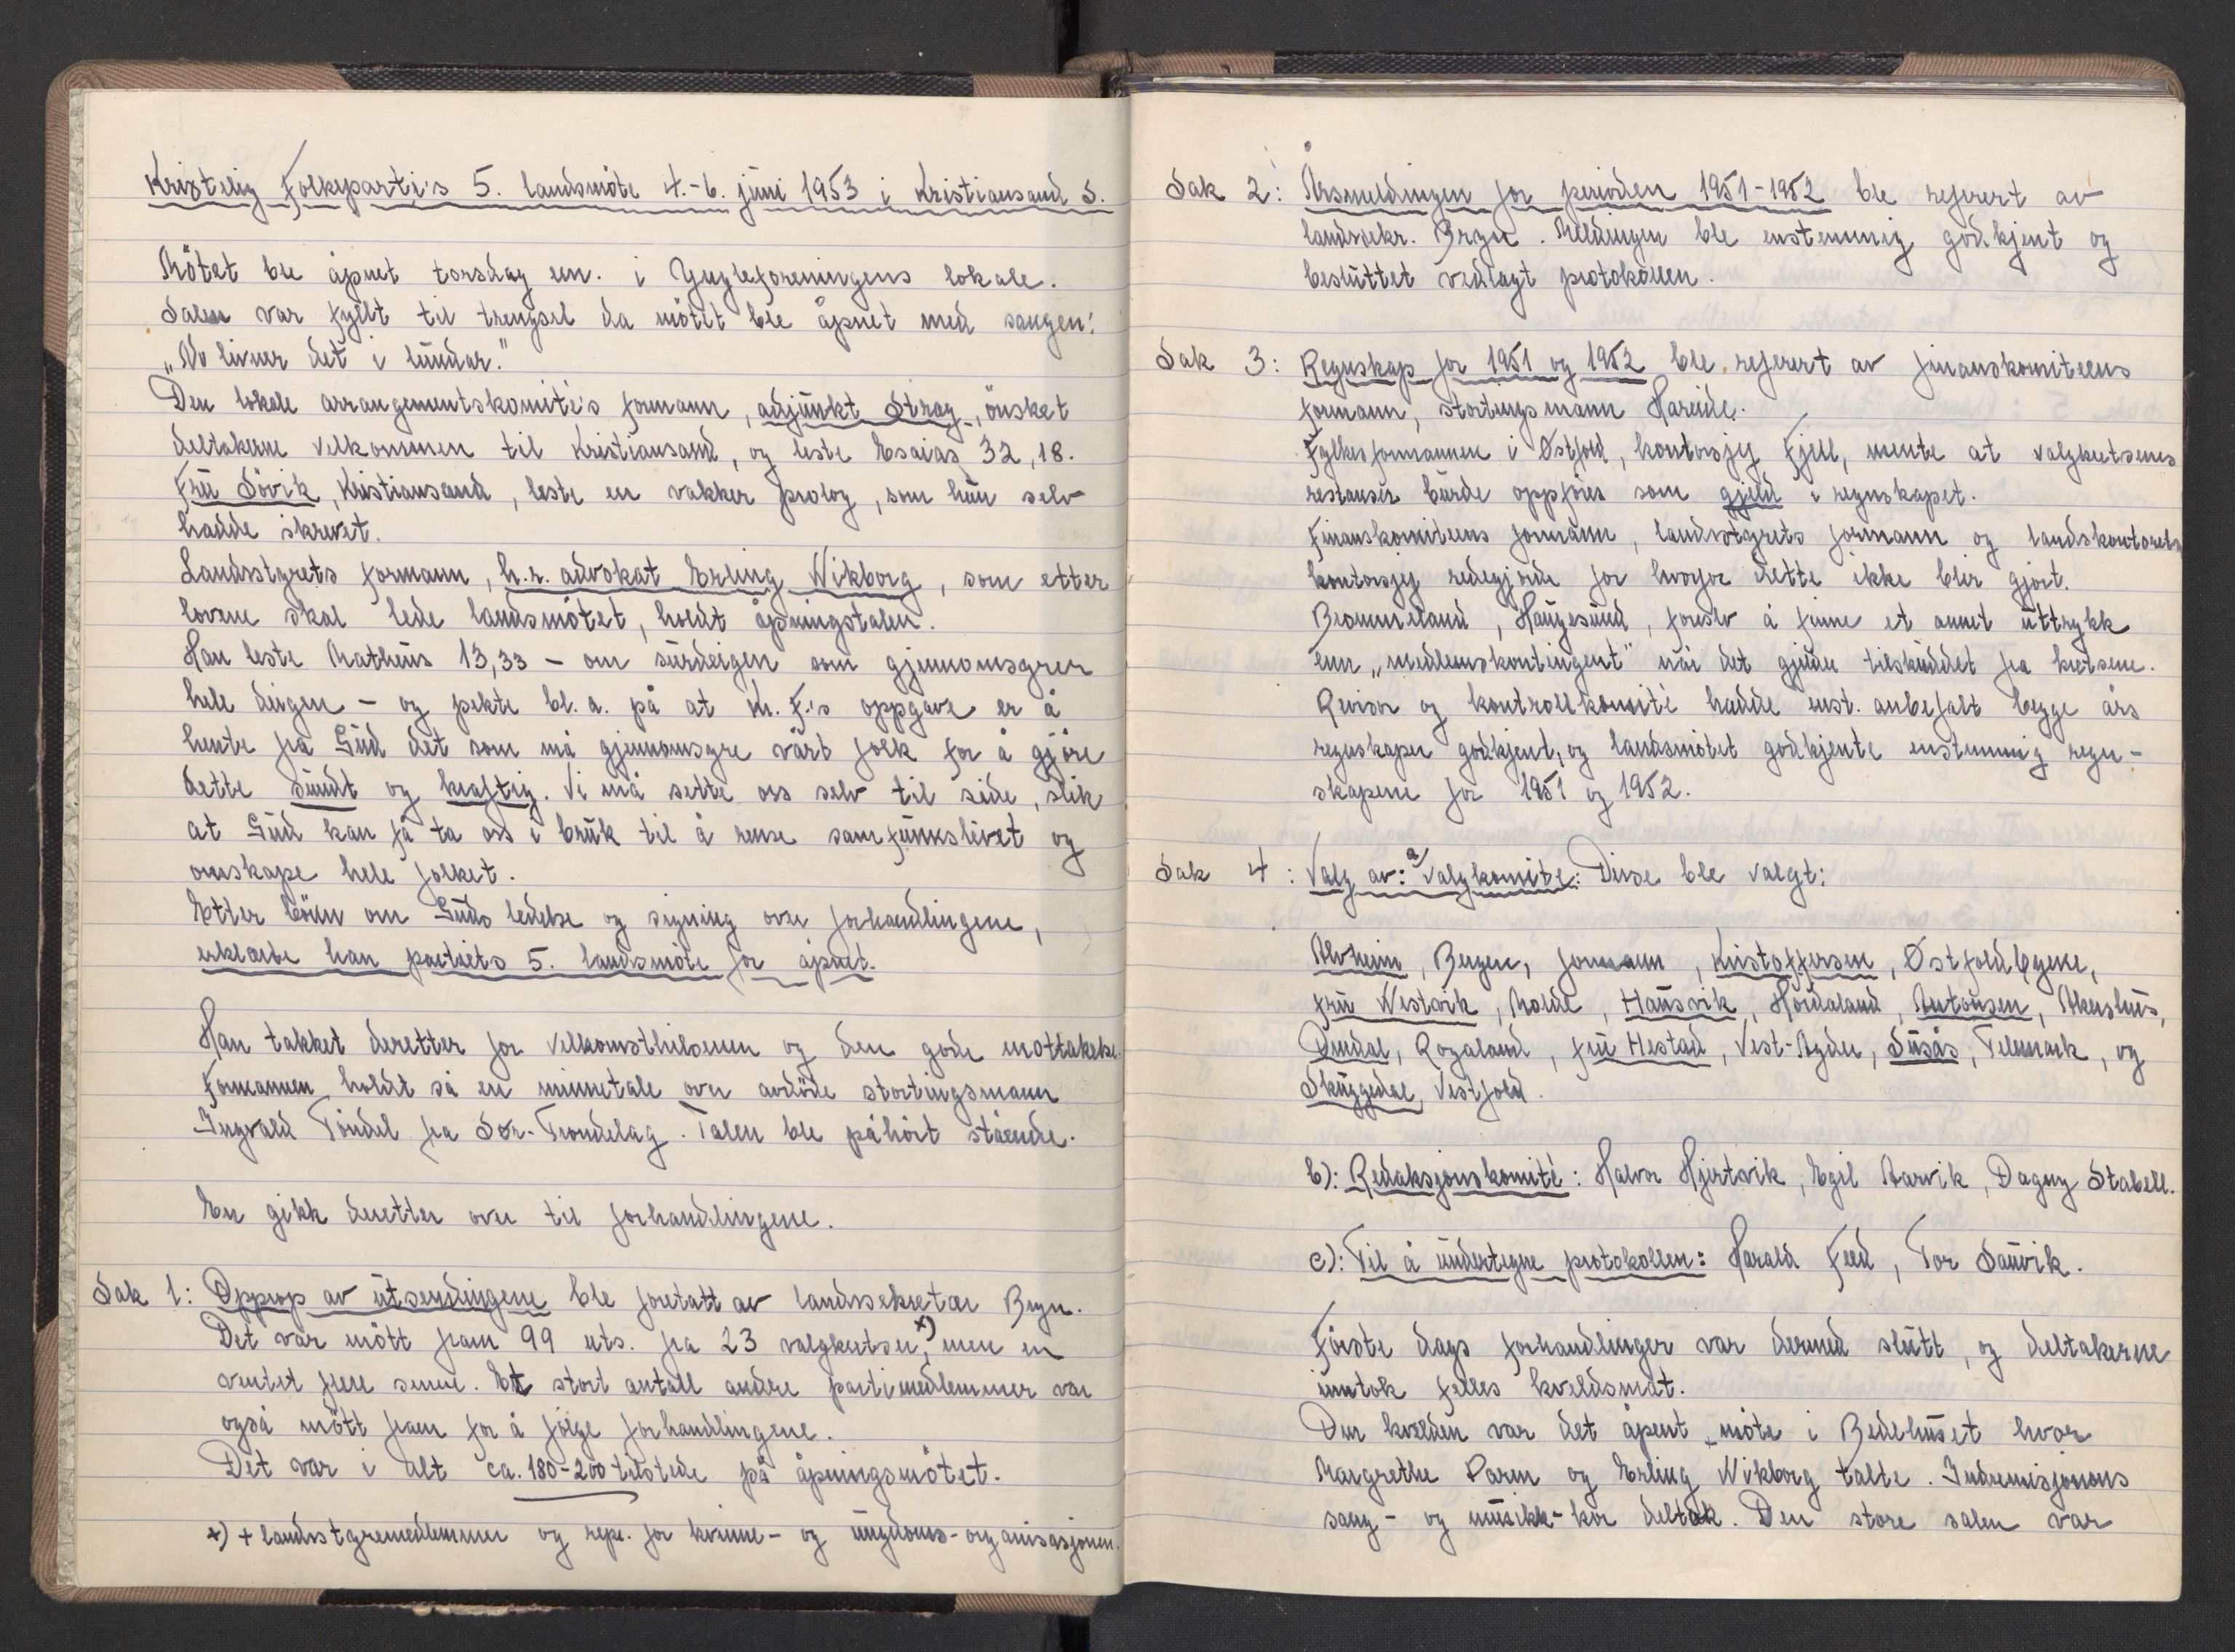 Kristelig Folkeparti's 5. landsmöte 4.-6. juni 1953 i Kristiansand S.
Mötet ble åpnet torsdag em. i Yngleforeningens lokale.
Salen var fyllt til trengsel da mötet ble åpnet med sangen:
"No livner det i lundar."
Den lokale arrangementskomité's formann, adjunkt Stray, önsket
deltakerne velkommen til Kristiansand, og leste Esaias 32,18.
Fru Sövik, Kristiansand, leste en vakker prolog, som hun selv
hadde skrevet.
Landsstyrets formann, h.r. advokat Erling Wikborg, som etter
lovene skal lede landsmötet, holdt åpningstalen.
Han leste Matheus 13,33 - om surdeigen som gjennomsyrer
hele deigen - og pekte bl.a. på at Kr. F.'s oppgave er å
hente fra Gud det som må gjennomsyre vårt folk for å gjöre
dette sundt og kraftig. Vi må sette oss selv til side, slik
at Gud kan få ta oss i bruk til å rense samfunnslivet og
omskape hele folket.
Etter bönn om Guds ledelse og signing over forhandlingene,
erklærte han partiets 5. landsmöte for åpnet.
Han takket deretter for velkomsthilsenen og den gode mottakelse.
Formannen holdt så en minnetale over avdöde stortingsmann
Ingvald Töndel fra Sör-Tröndelag. Talen ble påhört stående.
En gikk deretter over til forhandlingene.
Sak 1: Opprop av utsendingene ble foretatt av landssekretær Bryn.
Det var mött fram 99 uts. fra 23 valgkretser, x) men en
ventet flere senere. Et stort antall andre partimedlemmer var
også mött fram for å fölge forhandlingene.
Det var i alt ca. 180-200 tilstede på åpningsmötet.
x) + landsstyremedlemmer og repr. for kvinne- og ungdoms-organisasjonen.
Sak 2: Årsmeldingen for perioden 1951-1952 ble referert av
landssekr. Bryn. Meldingen ble enstemmig godkjent og
besluttet vedlagt protokollen.
Sak 3: Regnskap for 1951 og 1952 ble referert av finanskomiteens
formann, stortingsmann Hareide.
Fylkesformannen i Østfold, kontorsjef Fjell, mente at valgkretsenes
restanser burde oppföres som gjeld i regnskapet.
Finanskomiteens formann, landsstyrets formann og landskontorets
kontorsjef redegjorde for hvorfor dette ikke blir gjort.
Brommeland, Haugesund, foreslo å finne et annet uttrykk
enn "medlemskontingent" når det gjelder tilskuddet fra kretsene.
Revisor og kontrollkomité hadde enst. anbefalt begge års
regnskaper godkjent, og landsmötet godkjente enstemmig regn-
skapene for 1951 og 1952.
Sak 4: Valg av: a/ Valgkomite: Disse ble valgt:
Alvheim, Bergen, formann, Kristoffersen, Østfoldbyene,
fru Westvik, Molde, Hausvik, Hordaland, Antonsen, Akershus,
Omdal, Rogaland, fru Hestad, Vest-Agder, Susås, Telemark, og
Skuggedal, Vestfold.
b): Redaksjonskomité: Halvor Hjertvik, Egil Aarvik, Dagny Stabell.
c): Til å undertegne protokollen: Harald Feed, Tor Sauvik.
Förste dags forhandlinger var dermed slutt, og deltakerne
inntok felles kveldsmat.
Om kvelden var det åpent möte i Bedehuset hvor
Margrethe Parm og Erling Wikborg talte. Indremisjonens
sang- og musikk-kor deltok. Den store salen var